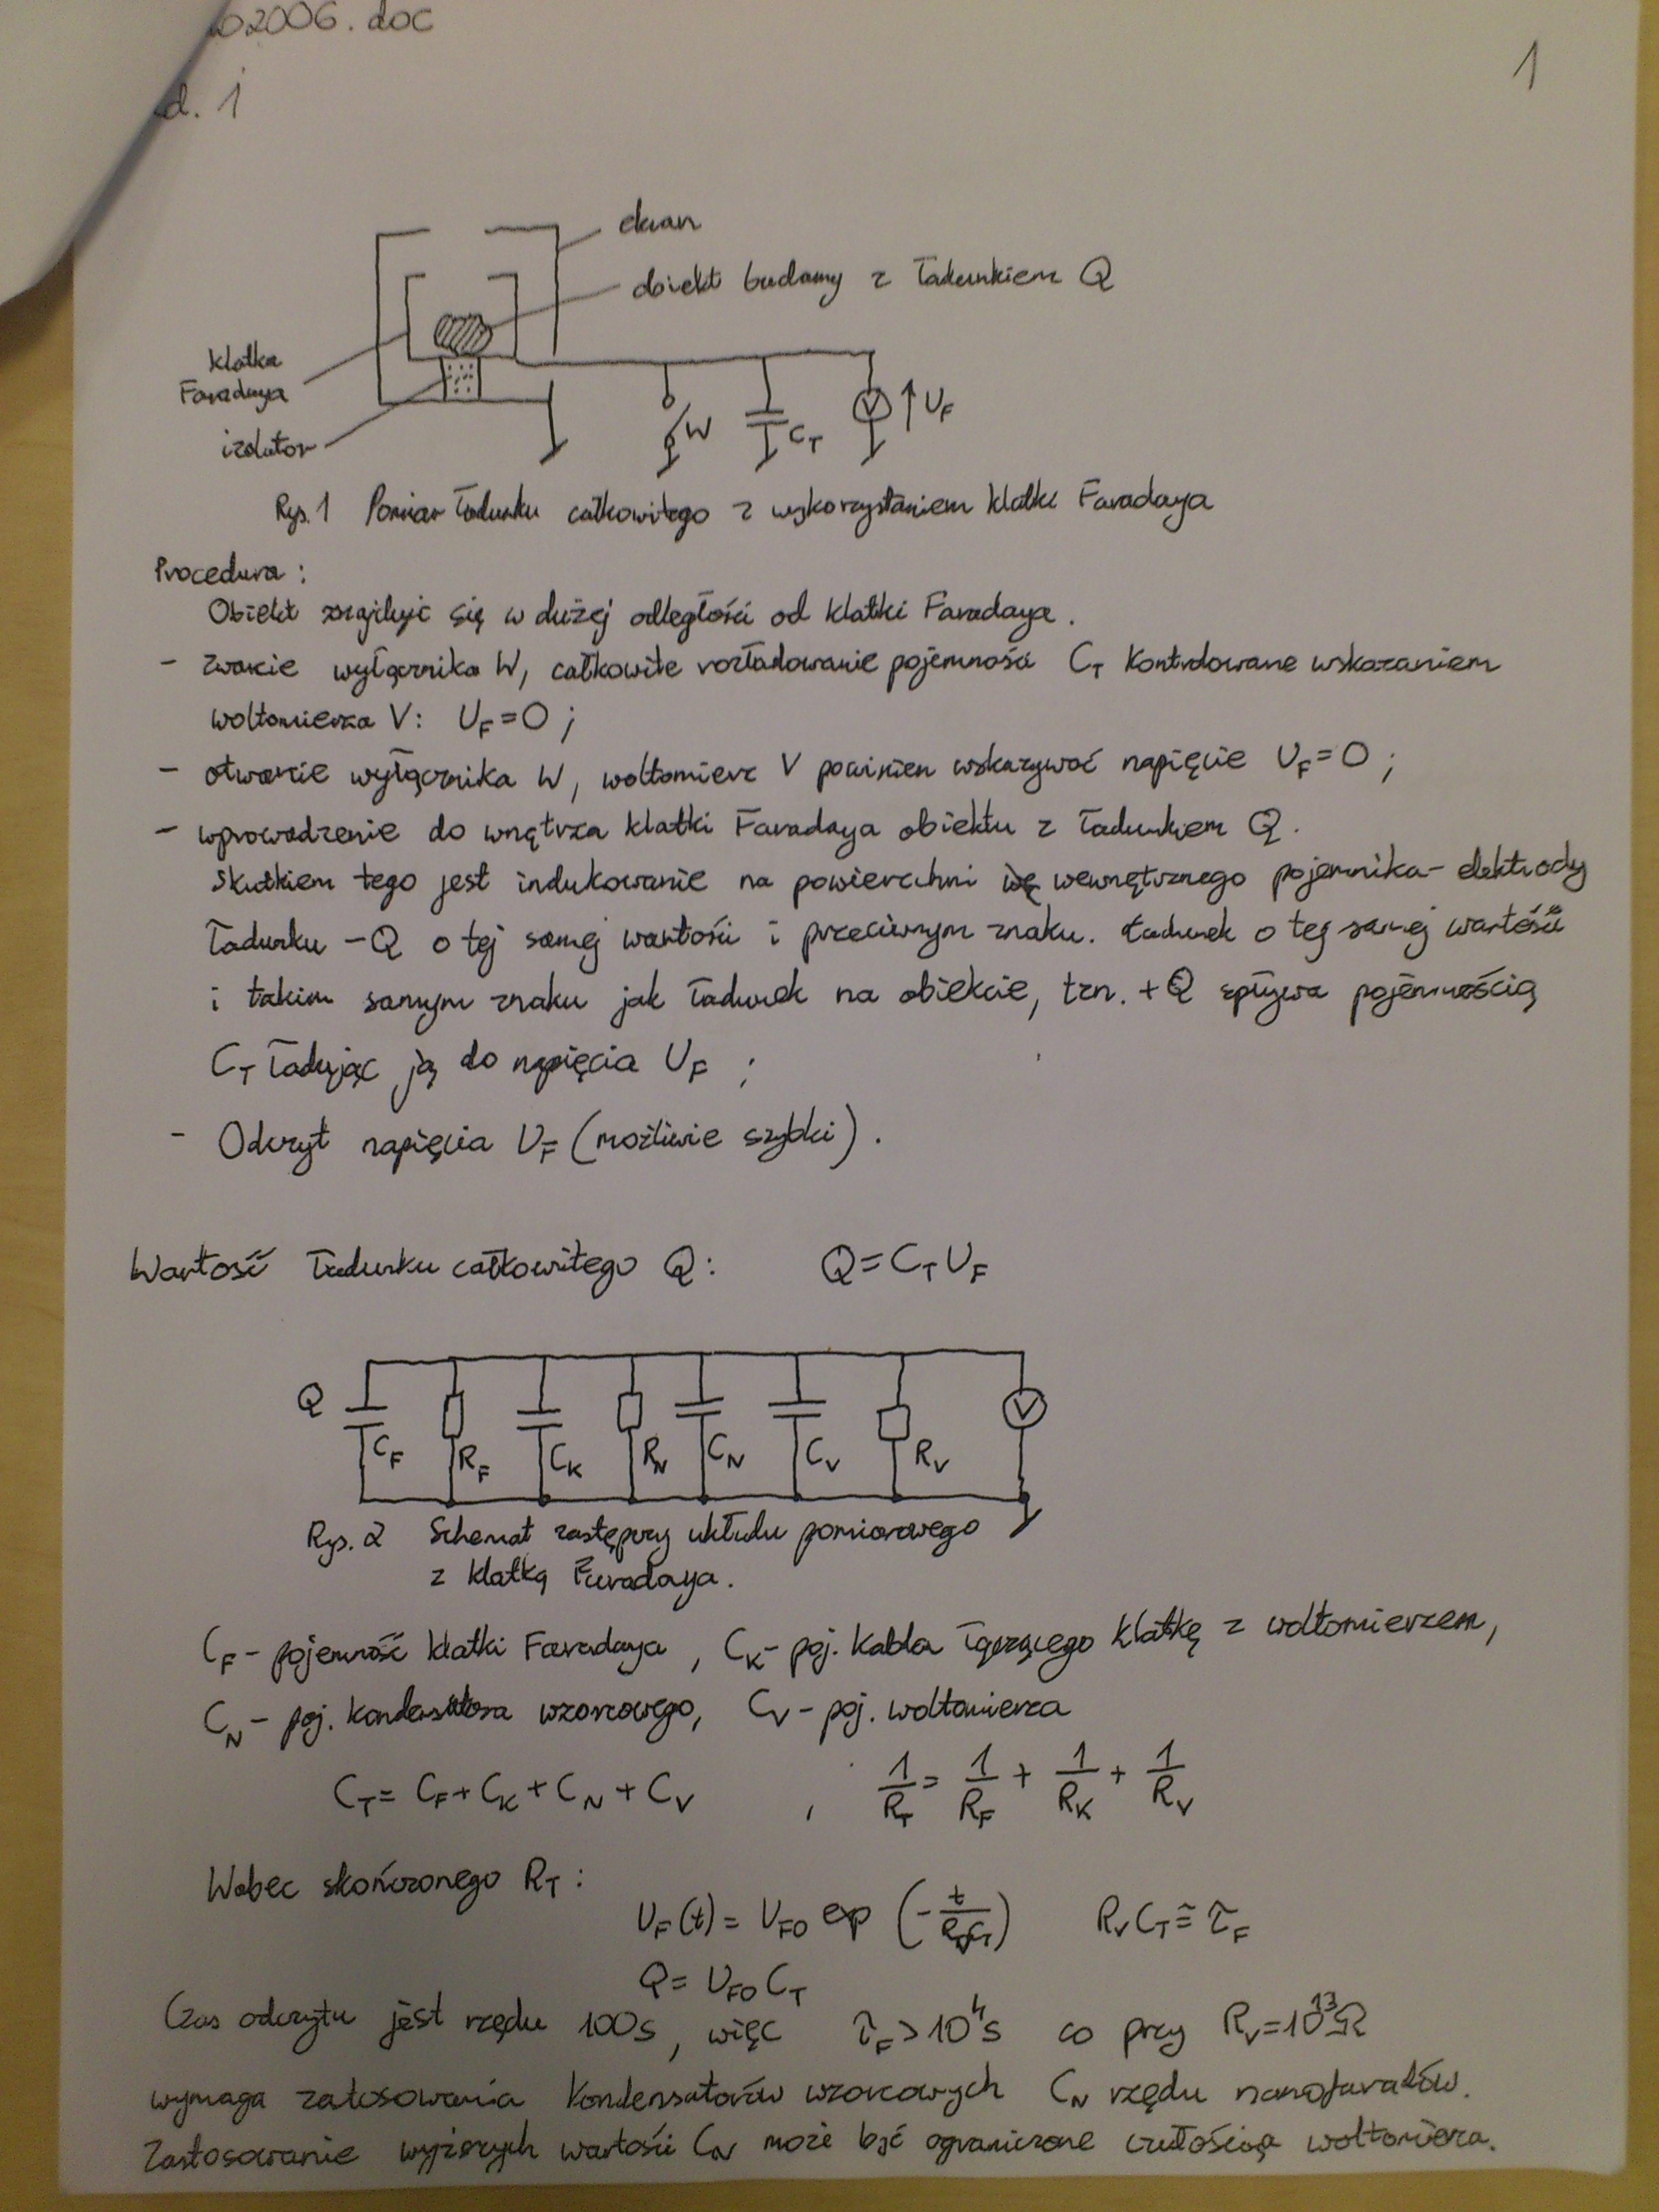 02006.doc
d. 1
1
ekran
obiekt badany z ładunkiem Q
klatka
Faradaya
izolator
W
C_T
V
U_F
Rys. 1 Pomiar ładunku całkowitego z wykorzystaniem klatki Faradaya
Procedura:
Obiekt znajduje się w dużej odległości od klatki Faradaya.
- zwarcie wyłącznika W, całkowite rozładowanie pojemności C_T kontrolowane wskazaniem
woltomierza V: U_F=0;
- otwarcie wyłącznika W, woltomierz V powinien wskazywać napięcie U_F=0;
- wprowadzenie do wnętrza klatki Faradaya obiektu z ładunkiem Q.
Skutkiem tego jest indukowanie na powierzchni wewnętrznego pojemnika-elektrody
ładunku -Q o tej samej wartości i przeciwnym znaku. Ładunek o tej samej wartości
i takim samym znaku jak ładunek na obiekcie, tzn. +Q spływa pojemnością
C_T ładując ją do napięcia U_F;
- Odczyt napięcia U_F (możliwie szybki).
Wartość ładunku całkowitego Q: Q=C_T U_F
Q C_F R_F C_K R_N C_N C_V R_V V
Rys. 2 Schemat zastępczy układu pomiarowego
z klatką Faradaya.
C_F - pojemność klatki Faradaya, C_K - poj. kabla łączącego klatkę z woltomierzem,
C_N - poj. kondensatora wzorcowego, C_V - poj. woltomierza
C_T = C_F + C_K + C_N + C_V , 1/R_T = 1/R_F + 1/R_K + 1/R_V
Wobec skończonego R_T:
U_F(t) = U_F0 exp (-t/R_V C_T) R_V C_T ≅ τ_F
Q = U_F0 C_T
Czas odczytu jest rzędu 100s, więc τ_F > 10^4 s co przy R_V = 10^13 Ω
wymaga zatosowania kondensatorów wzorcowych C_N rzędu nanofaradów.
Zastosowanie wyższych wartości C_N może być ograniczone czułością woltomierza.